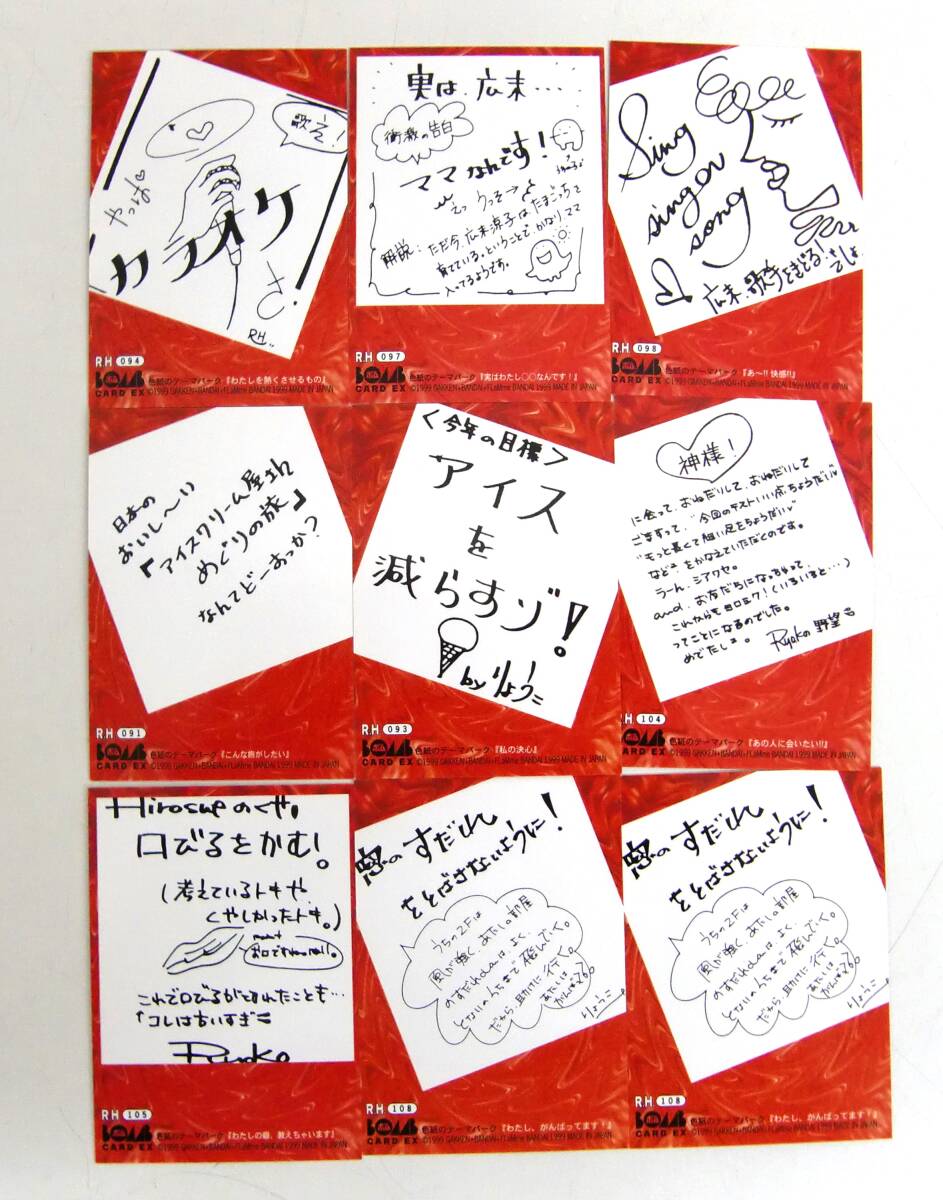 歌え！
やっぱ
カラオケ
さ.
R.H.
RH 094
BOMB
CARD EX
色紙のテーマパーク『わたしを熱くさせるもの』
©1999 GAKKEN・BANDAI・FLaMme BANDAI 1999 MADE IN JAPAN
実は、広末...
衝撃の告白
ママなんです！
うっそ→
解説：ただ今、広末涼子はたまごっちを
育てている。ということで、かなりママ
入ってるようです。
RH 097
BOMB
CARD EX
色紙のテーマパーク『実はわたし〇〇なんです！』
©1999 GAKKEN・BANDAI・FLaMme BANDAI 1999 MADE IN JAPAN
Sing
singer
song
広末、歌手
RH 098
BOMB
CARD EX
色紙のテーマパーク『あ〜!! 快感!!』
©1999 GAKKEN・BANDAI・FLaMme BANDAI 1999 MADE IN JAPAN
日本の
おいし〜い
『アイスクリーム屋さん
めぐりの旅』
なんてどーおっか？
RH 091
BOMB
CARD EX
色紙のテーマパーク『こんな旅がしたい』
©1999 GAKKEN・BANDAI・FLaMme BANDAI 1999 MADE IN JAPAN
<今年の目標>
アイス
を
減らすゾ！
by りょうこ
RH 093
BOMB
CARD EX
色紙のテーマパーク『私の決心』
©1999 GAKKEN・BANDAI・FLaMme BANDAI 1999 MADE IN JAPAN
神様！
に会って、おねだりして、おねだりして
ごますって、"今回のテストいい点ちょうだい"
"もっと長くて細い足をちょうだい"
などをかなえていただくのです。
うーん、シアワセ。
and、お友だちになっちゃって
これからもヨロシク！(いろいろと…)
ってことになるのでした。
めでたし
Ryokoの野望
RH 104
BOMB
CARD EX
色紙のテーマパーク『あの人に会いたい!!』
©1999 GAKKEN・BANDAI・FLaMme BANDAI 1999 MADE IN JAPAN
Hirosueのくせ。
口びるをかむ！
(考えているトキや、
くやしかったトキ。)
これで口びるがとれたことも…
「コレは古いすぎ
Ryoko
RH 105
BOMB
CARD EX
色紙のテーマパーク『わたしの癖、教えちゃいます』
©1999 GAKKEN・BANDAI・FLaMme BANDAI 1999 MADE IN JAPAN
窓のすだれ
をとばさないように！
うちの2Fは
風が強く、あたしの部屋
のすだれdaはよく、
となりのうちまで飛んでいく。
だから、助けに行く。
あたしは
がんばってる。
りょうこ
RH 108
BOMB
CARD EX
色紙のテーマパーク『わたし、がんばってます！』
©1999 GAKKEN・BANDAI・FLaMme BANDAI 1999 MADE IN JAPAN
窓のすだれ
をとばさないように！
うちの2Fは
風が強く、あたしの部屋
のすだれdaはよく、
となりのうちまで飛んでいく。
だから、助けに行く。
あたしは
がんばってる。
りょうこ
RH 108
BOMB
CARD EX
色紙のテーマパーク『わたし、がんばってます！』
©1999 GAKKEN・BANDAI・FLaMme BANDAI 1999 MADE IN JAPAN